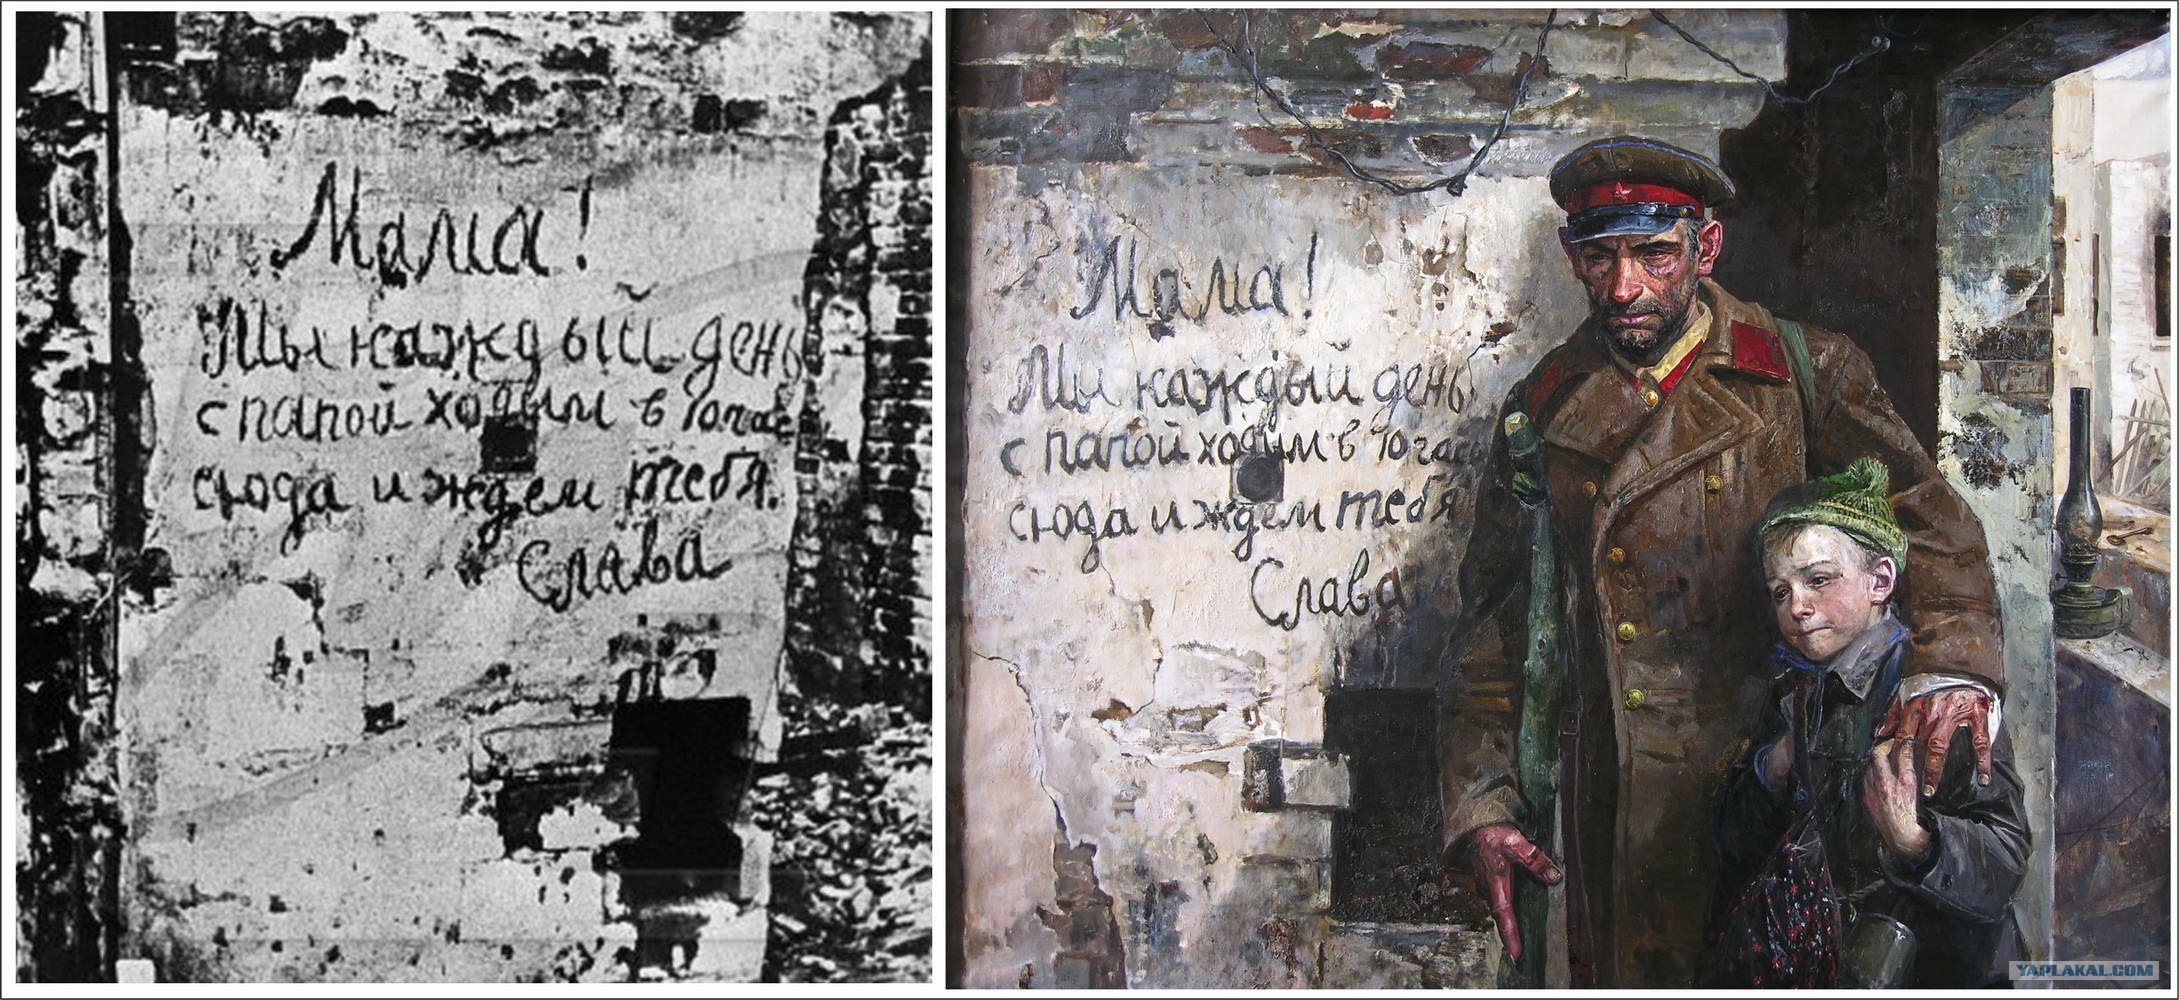 Мама!
Мы каждый день
с папой ходим в 10 час
сюда и ждем тебя.
Слава
Мама!
Мы каждый день
с папой ходим в 10 час
сюда и ждем тебя
Слава
YAPLAKAL.COM